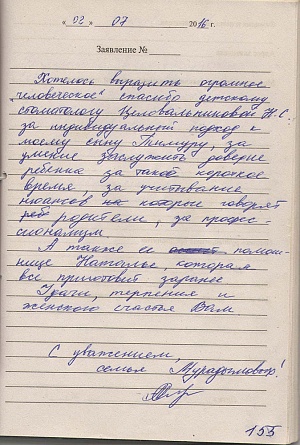 « 02 » 07 2016 г.
Заявление №
Хотелось выразить огромное
"человеческое" спасибо детскому
стоматологу Целовальниковой Н.С.
за индивидуальный подход к
моему сыну Тимуру, за
умение заслужить доверие
ребенка за такое короткое
время, за учитывание
нюансов на которые говорят
родители, за профес-
сионализм
А также ее помощ-
нице Наталье, которая
все приготовит заранее
Удачи, терпения и
женского счастья Вам
С уважением,
семья Мурадымовых!
155